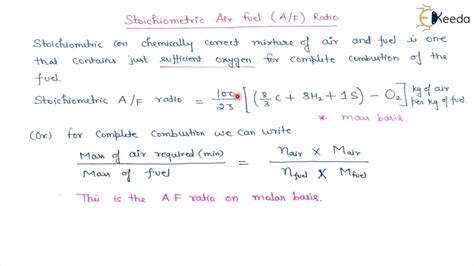 Stoichiometric Air fuel (A/F) Ratio
Ekeeda
Stoichiometric (or) chemically correct mixture of air and fuel is one
that contains just sufficient oxygen for complete combustion of the
fuel.
Stoichiometric A/F ratio = 100/23 [(8/3 C + 8H₂ + 1S) - O₂] kg of air per kg of fuel.
* mass basis.
(Or) for Complete Combustion we can write
Mass of air required (min) / Mass of fuel = nair × Mair / nfuel × Mfuel
This is the AF ratio on molar basis.